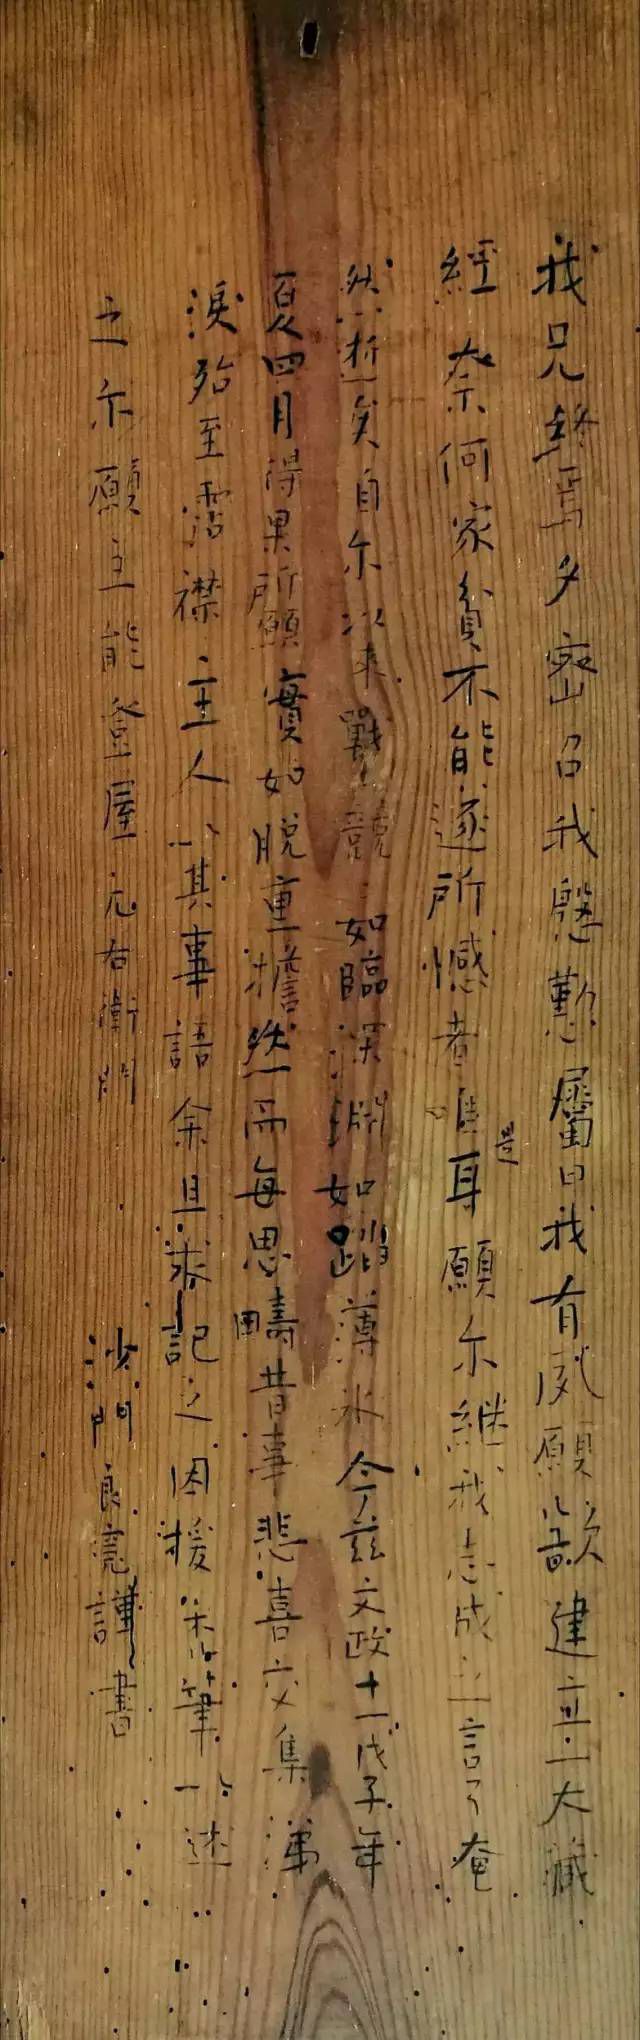 我兄終焉夕密召我慇懃屬曰我有夙願欲建立大藏
經奈何家貧不能遂所憾者是耳願尓継我志成之言了奄
然逝矣自尓以来戰〻競〻如臨深淵如踏薄氷今茲文政十一戊子年
夏四月得果所願實如脱重擔然而每思疇昔事悲喜交集涕
淚殆至霑襟主人以其事語余且求記之因援禿筆以述
之尓願主能登屋元右衛門 沙門良寛謹書